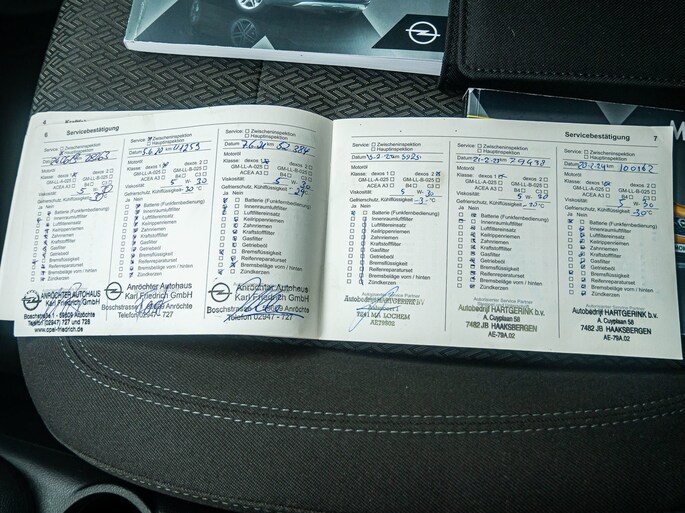 6 Servicebestätigung
Service: Zwischeninspektion
Hauptinspektion
Datum km
Motoröl
Klasse: dexos 1 dexos 2
GM-LL-A-025 GM-LL-B-025
ACEA A3 B4 C3
Viskosität: 5 W- 30
Gefrierschutz, Kühlflüssigkeit:
Ja Nein
Batterie (Funkfernbedienung)
Innenraumluftfilter
Luftfiltereinsatz
Keilrippenriemen
Zahnriemen
Kraftstofffilter
Gasfilter
Getriebeöl
Bremsflüssigkeit
Reifenreparaturset
Bremsbeläge vorn / hinten
Zündkerzen
ANRÖCHTER AUTOHAUS
KARL FRIEDRICH GMBH
Boschstraße 1 - 59609 Anröchte
Telefon 02947 / 727 und 728
www.opel-friedrich.de
Service: Zwischeninspektion
Hauptinspektion
Datum 5.6.20 km 41253
Motoröl
Klasse: dexos 1 dexos 2
GM-LL-A-025 GM-LL-B-025
ACEA A3 B4 C3
Viskosität: 5 W- 30
Gefrierschutz, Kühlflüssigkeit: -30 °C
Ja Nein
Batterie (Funkfernbedienung)
Innenraumluftfilter
Luftfiltereinsatz
Keilrippenriemen
Zahnriemen
Kraftstofffilter
Gasfilter
Getriebeöl
Bremsflüssigkeit
Reifenreparaturset
Bremsbeläge vorn / hinten
Zündkerzen
Anröchter Autohaus
Karl Friedrich GmbH
Boschstraße
Telefon 02947 - 727
Service: Zwischeninspektion
Hauptinspektion
Datum 7.6.21 km 52.384
Motoröl
Klasse: dexos 1 dexos 2
GM-LL-A-025 GM-LL-B-025
ACEA A3 B4 C3
Viskosität: 5 W- 30
Gefrierschutz, Kühlflüssigkeit:
Ja Nein
Batterie (Funkfernbedienung)
Innenraumluftfilter
Luftfiltereinsatz
Keilrippenriemen
Zahnriemen
Kraftstofffilter
Gasfilter
Getriebeöl
Bremsflüssigkeit
Reifenreparaturset
Bremsbeläge vorn / hinten
Zündkerzen
Anröchter Autohaus
Karl Friedrich GmbH
Boschstraße Anröchte
Telefon 02947 - 727
Servicebestätigung 7
Service: Zwischeninspektion
Hauptinspektion
Datum km
Motoröl
Klasse: dexos 1 dexos 2
GM-LL-A-025 GM-LL-B-025
ACEA A3 B4 C3
Viskosität: 5 W- 30
Gefrierschutz, Kühlflüssigkeit:
Ja Nein
Batterie (Funkfernbedienung)
Innenraumluftfilter
Luftfiltereinsatz
Keilrippenriemen
Zahnriemen
Kraftstofffilter
Gasfilter
Getriebeöl
Bremsflüssigkeit
Reifenreparaturset
Bremsbeläge vorn / hinten
Zündkerzen
Autobedrijf HARTGERINK b.v.
7241 MA LOCHEM
Service: Zwischeninspektion
Hauptinspektion
Datum km 79438
Motoröl
Klasse: dexos 1 dexos 2
GM-LL-A-025 GM-LL-B-025
ACEA A3 B4 C3
Viskosität: 5 W- 30
Gefrierschutz, Kühlflüssigkeit:
Ja Nein
Batterie (Funkfernbedienung)
Innenraumluftfilter
Luftfiltereinsatz
Keilrippenriemen
Zahnriemen
Kraftstofffilter
Gasfilter
Getriebeöl
Bremsflüssigkeit
Reifenreparaturset
Bremsbeläge vorn / hinten
Zündkerzen
Autobedrijf HARTGERINK b.v.
A. Cuyplaan 58
7482 JB HAAKSBERGEN
AE-79A.02
Service: Zwischeninspektion
Hauptinspektion
Datum 20-2-24 km 100162
Motoröl
Klasse: dexos 1 dexos 2
GM-LL-A-025 GM-LL-B-025
ACEA A3 B4 C3
Viskosität: 5 W- 30
Gefrierschutz, Kühlflüssigkeit: -30 °C
Ja Nein
Batterie (Funkfernbedienung)
Innenraumluftfilter
Luftfiltereinsatz
Keilrippenriemen
Zahnriemen
Kraftstofffilter
Gasfilter
Getriebeöl
Bremsflüssigkeit
Reifenreparaturset
Bremsbeläge vorn / hinten
Zündkerzen
Autobedrijf HARTGERINK b.v.
A. Cuyplaan 58
7482 JB HAAKSBERGEN
AE-79A.02